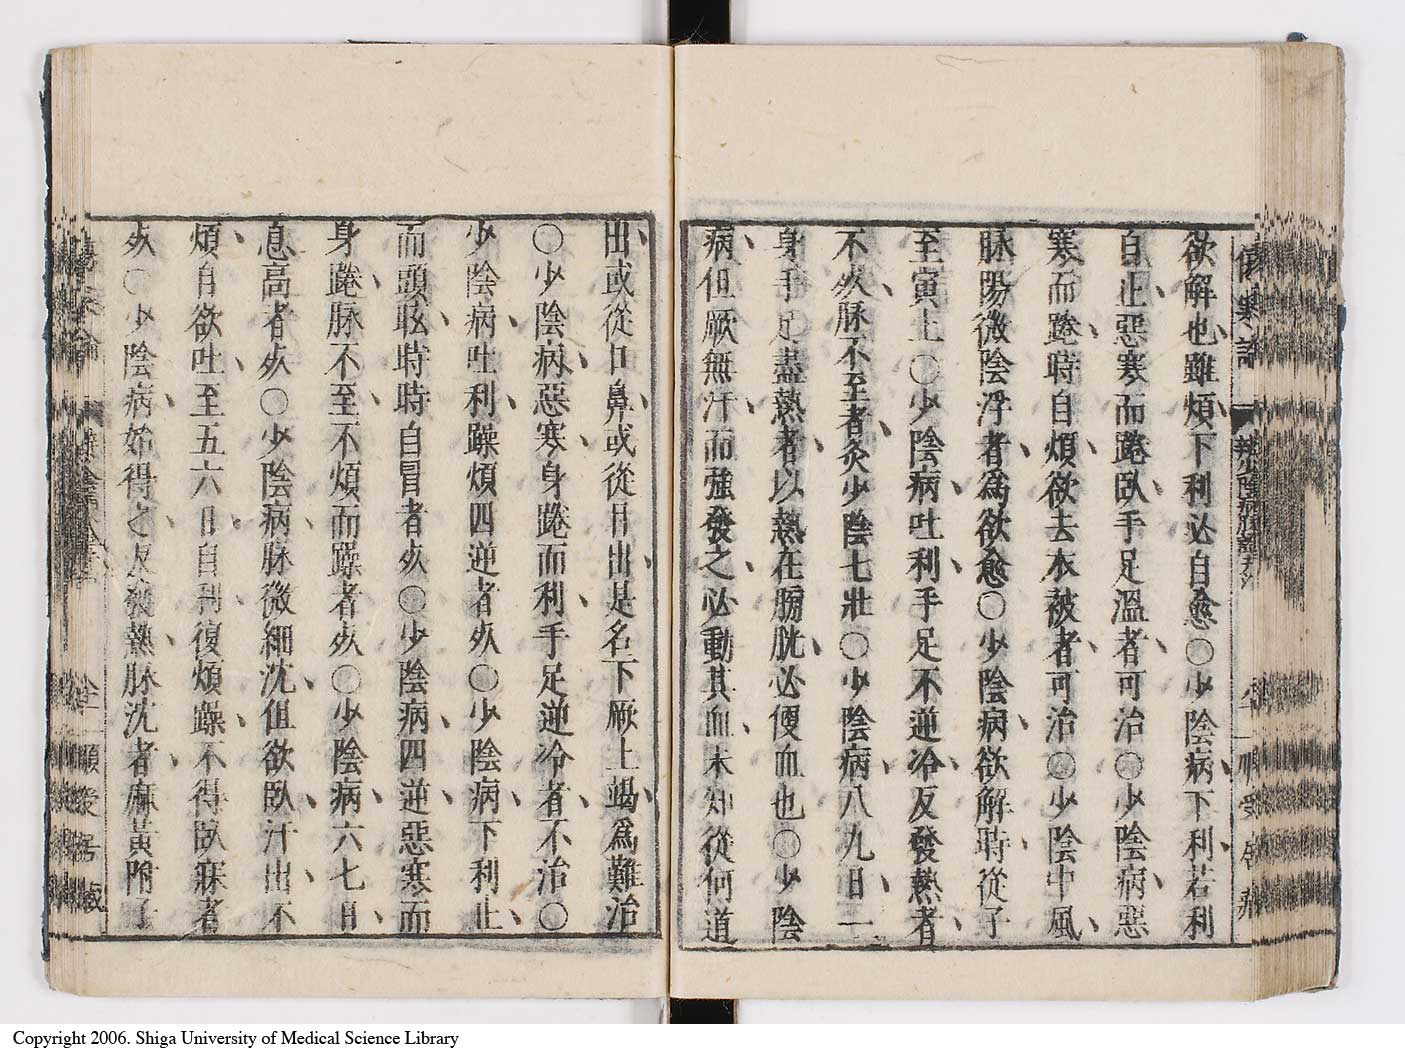 欲解也雖煩下利必自愈○少陰病下利若利
自止惡寒而踡臥手足溫者可治○少陰病惡
寒而踡時自煩欲去衣被者可治○少陰中風
脉陽微陰浮者爲欲愈○少陰病欲解時從子
至寅上○少陰病吐利手足不逆冷反發熱者
不死脉不至者灸少陰七壯○少陰病八九日一
身手足盡熱者以熱在膀胱必便血也○少陰
病但厥無汗而強發之必動其血未知從何道
出或從口鼻或從目出是名下厥上竭爲難治
○少陰病惡寒身踡而利手足逆冷者不治○
少陰病吐利躁煩四逆者死○少陰病下利止
而頭眩時時自冒者死○少陰病四逆惡寒而
身踡脉不至不煩而躁者死○少陰病六七日
息高者死○少陰病脉微細沈但欲臥汗出不
煩自欲吐至五六日自利復煩躁不得臥寐者
死○少陰病始得之反發熱脉沈者麻黃附子
Copyright 2006. Shiga University of Medical Science Library